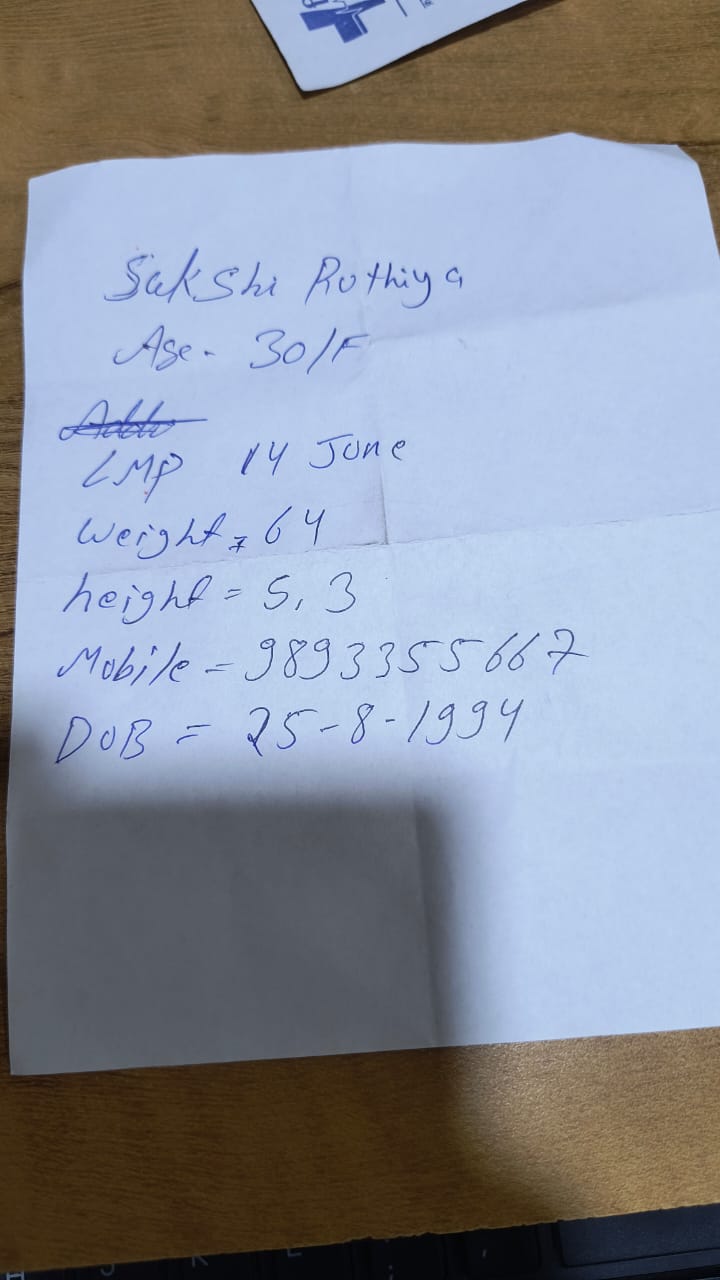 Sakshi Ruthiya
Age - 30/F
LMP 14 June
Weight = 64
height = 5,3
Mobile = 9893355667
DOB = 25-8-1994